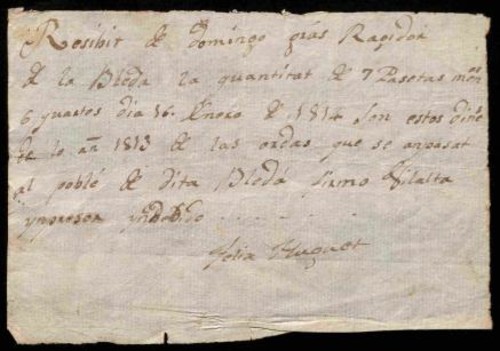 Resibit de domingo gras Ragidor
de la Bleda la quantitat de 7 Pasetas mes
6 quartos dia 16. Enero de 1814 son estos dine
de lo añ 1813 de las ordas que se anpasat
al poblé de dita Bleda firmo Vilalta
ynpresor
Felix Huguet